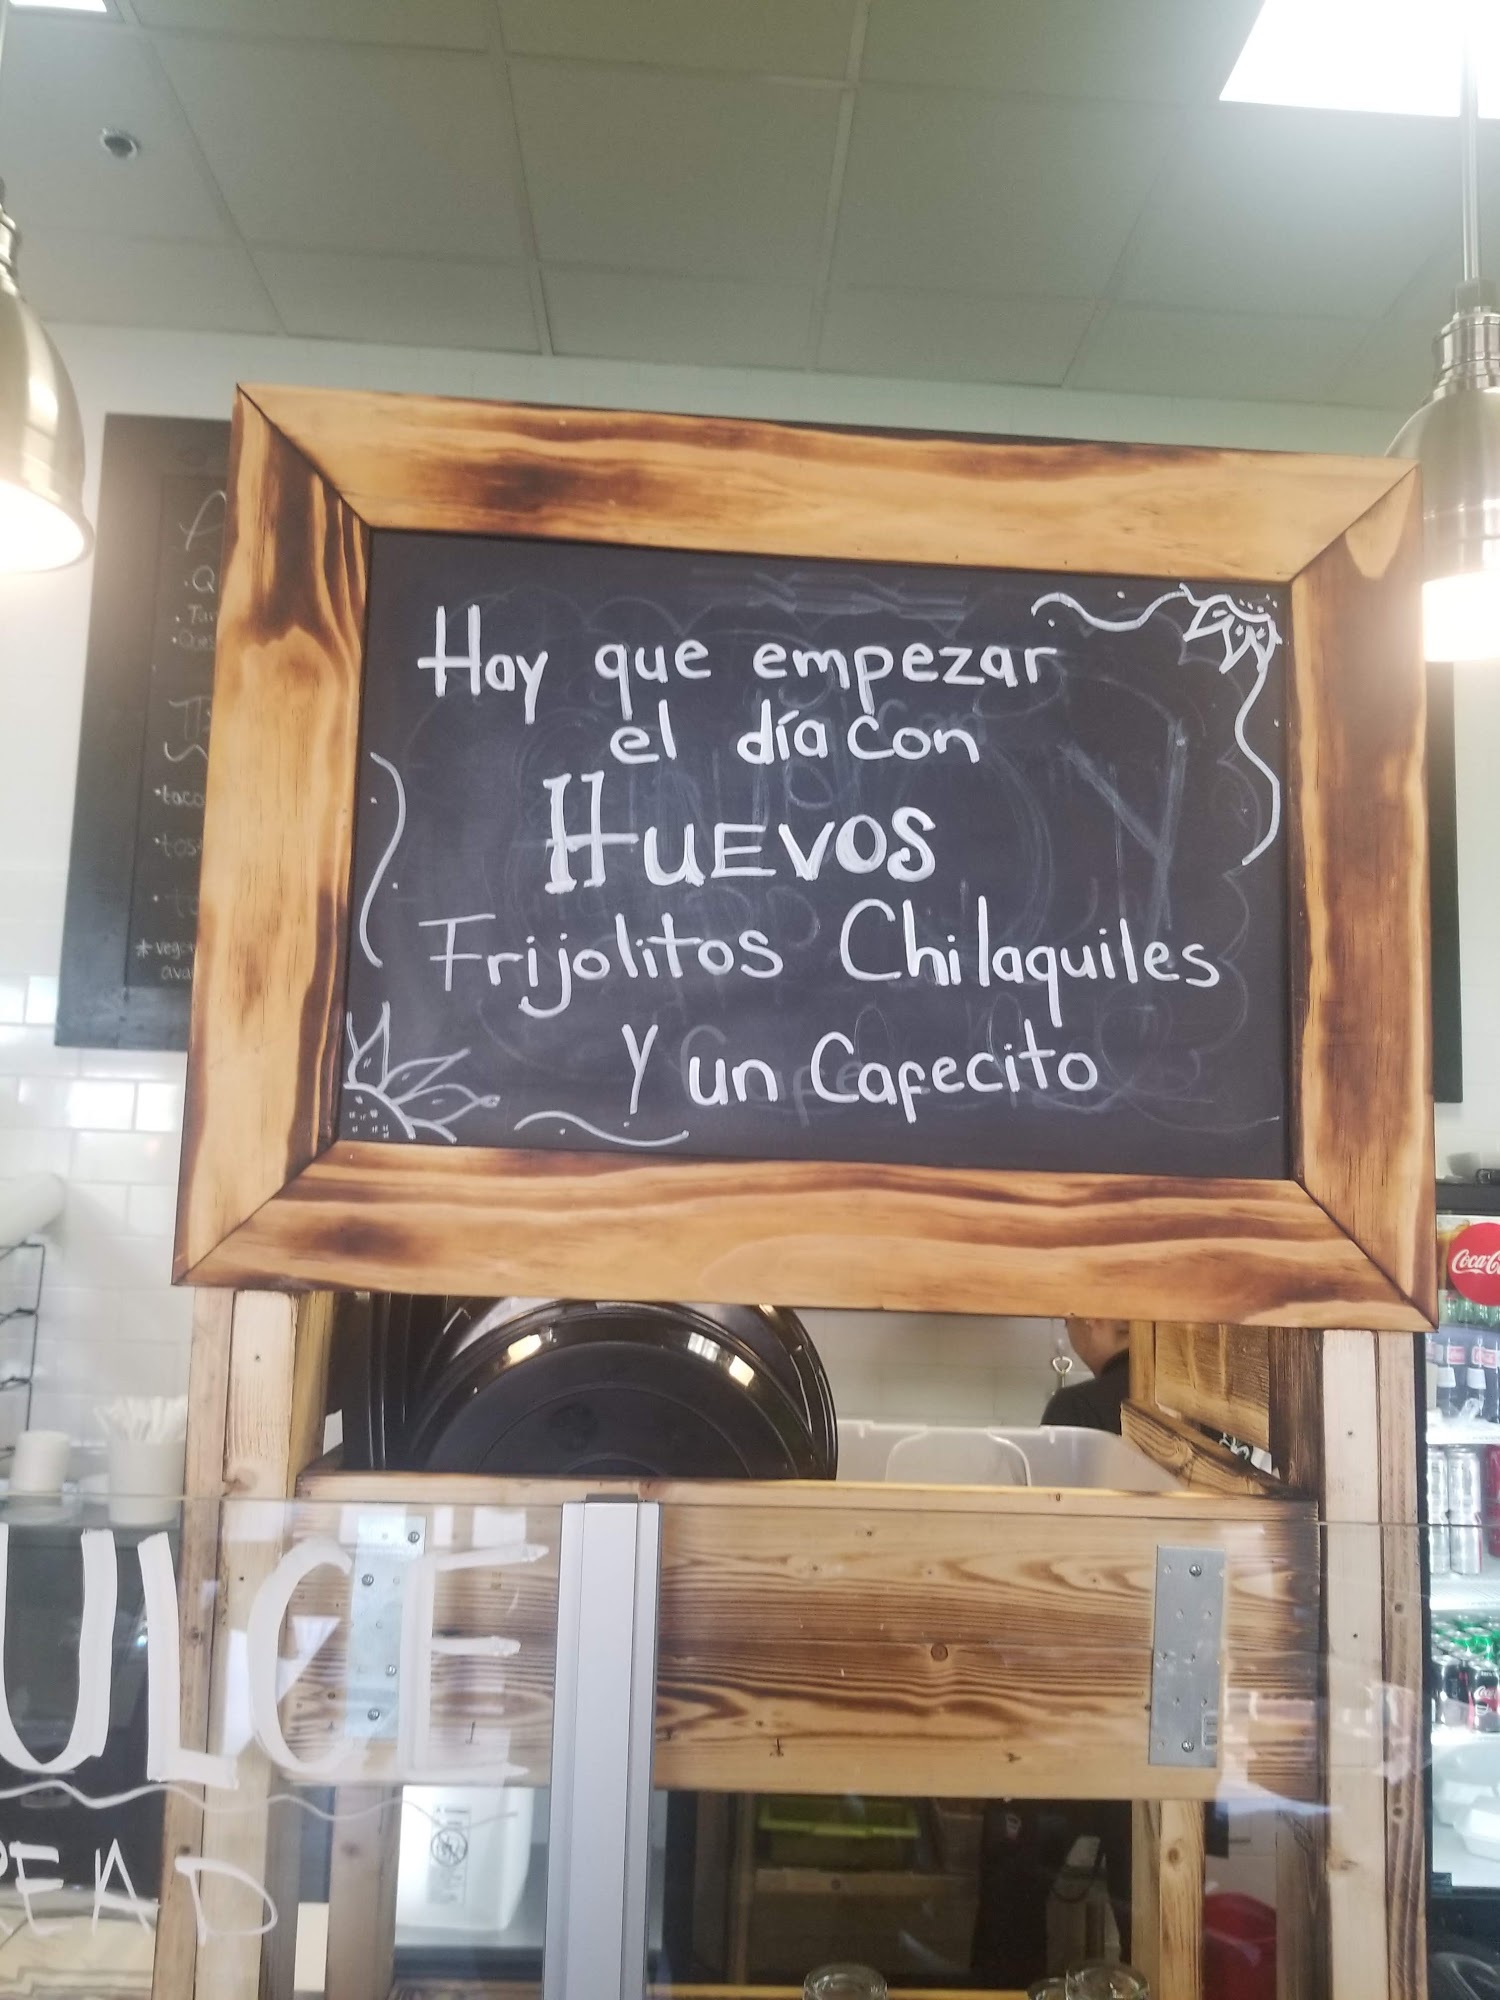 Hay que empezar
el día con
HUEVOS
Frijolitos Chilaquiles
Y un Cafecito
Coca-C
ULCE
READ